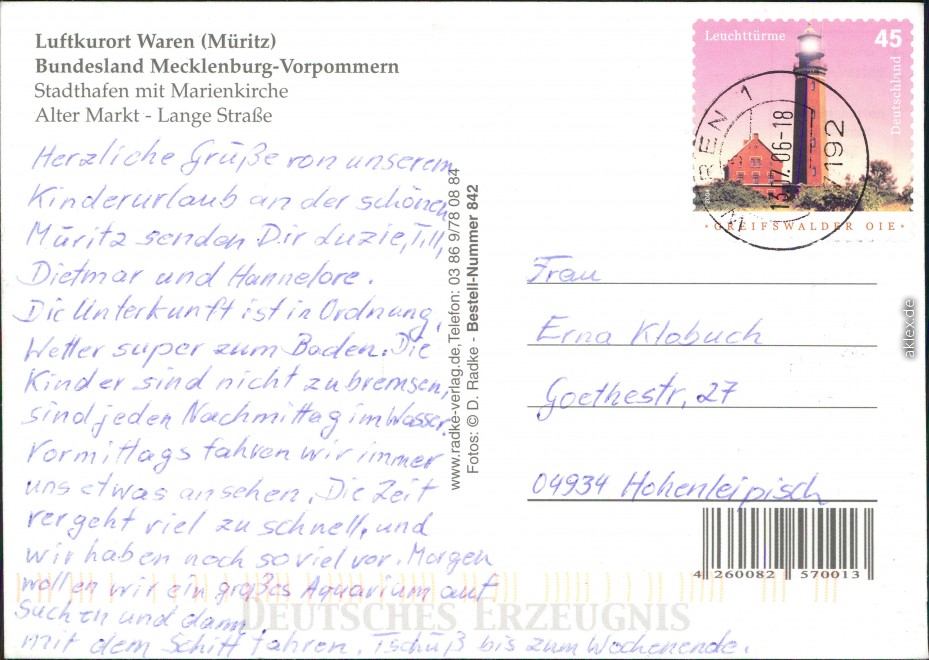 Luftkurort Waren (Müritz)
Bundesland Mecklenburg-Vorpommern
Stadthafen mit Marienkirche
Alter Markt - Lange Straße
Herzliche Grüße von unserem
Kinderurlaub an der schönen
Müritz senden Dir Luzie, Till,
Dietmar und Hannelore.
Die Unterkunft ist in Ordnung,
Wetter super zum Baden. Die
Kinder sind nicht zu bremsen,
sind jeden Nachmittag im Wasser.
Vormittags fahren wir immer
uns etwas ansehen. Die Zeit
vergeht viel zu schnell, und
wir haben noch so viel vor. Morgen
wollen wir ein großes Aquarium auf
suchen und dann
mit dem Schiff fahren. Tschüß bis zum Wochenende.
www.radke-verlag.de, Telefon: 03 86 9/78 08 84
Fotos: © D. Radke - Bestell-Nummer 842
Leuchttürme
45
Deutschland
GREIFSWALDER OIE
WAREN 1
13.07.06-18
17192
Frau
Erna Klobuch
Goethestr. 27
04934 Hohenleipisch
4 260082 570013
DEUTSCHES ERZEUGNIS
aklex.de